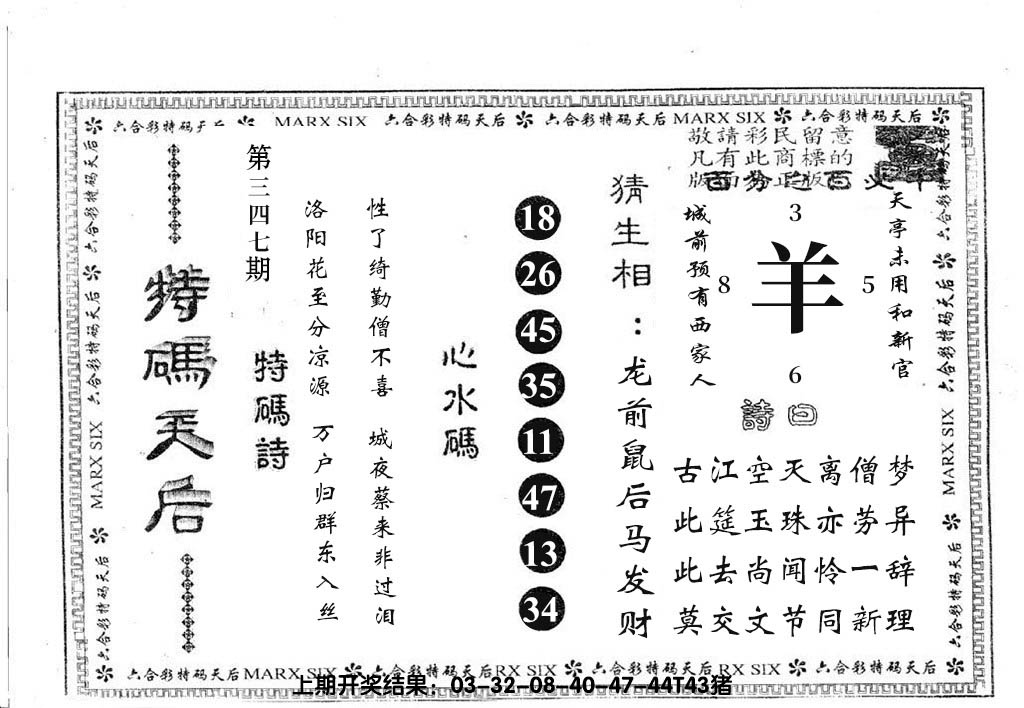 六合彩特码天后 MARX SIX 六合彩特码天后 六合彩特码天后 MARX SIX 六合彩特码天后
敬請彩民留意
凡有此商標的
版面為正版
特碼天后
第三四七期
特碼詩
洛阳花至分凉源 万户归群东入丝
性了绮勤僧不喜 城夜蔡来非过泪
心水碼
18
26
45
35
11
47
13
34
猜生相：龙前鼠后马发财
城前预有西家人
3
8
羊
5
6
天亭未用和新官
詩曰
古江空天离僧梦
此筵玉珠亦劳异
此去尚闻怜一辞
莫交文节同新理
六合彩特码天后 MARX SIX 六合彩特码天后RX SIX 六合彩特码天后 RX SIX 六合彩特码天后
上期开奖结果：03-32-08-40-47-44T43猪